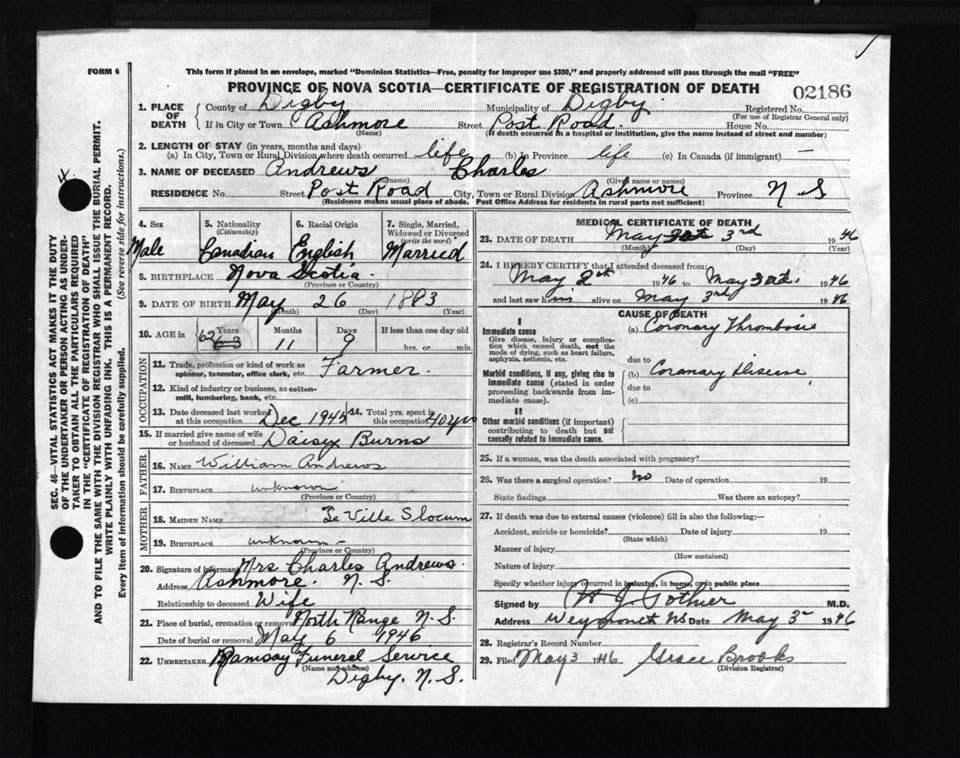 FORM 6
This form if placed in an envelope, marked "Dominion Statistics—Free, penalty for improper use $300," and properly addressed will pass through the mail "FREE"
PROVINCE OF NOVA SCOTIA—CERTIFICATE OF REGISTRATION OF DEATH
02186
1. PLACE OF DEATH County of Digby Municipality of Digby Registered No.
(For use of Registrar General only)
If in City or Town Ashmore Street Post Road. House No.
(Name) (If death occurred in a hospital or institution, give the name instead of street and number)
2. LENGTH OF STAY (in years, months and days)
(a) In City, Town or Rural Division where death occurred life (b) In Province life (c) In Canada (if immigrant) —
3. NAME OF DECEASED Andrews Charles
(Given name or names)
RESIDENCE No. Street Post Road City, Town or Rural Division Ashmore Province N S
(Residence means usual place of abode. Post Office Address for residents in rural parts not sufficient)
4. Sex 5. Nationality (Citizenship) 6. Racial Origin 7. Single, Married, Widowed or Divorced (write the word)
Male Canadian English Married
8. BIRTHPLACE Nova Scotia.
(Province or Country)
9. DATE OF BIRTH May 26 1883
(Month) (Day) (Year)
10. AGE in Years Months Days If less than one day old
62 63 11 9 hrs. or min.
OCCUPATION
11. Trade, profession or kind of work as spinner, teamster, office clerk, etc. Farmer.
12. Kind of industry or business, as cotton-mill, lumbering, bank, etc.
13. Date deceased last worked at this occupation Dec 1945 14. Total yrs. spent in this occupation 40 yrs
15. If married give name of wife or husband of deceased Daisy Burns
FATHER
16. NAME William Andrews
17. BIRTHPLACE unknown
(Province or Country)
MOTHER
18. MAIDEN NAME Le Ville Slocum
19. BIRTHPLACE unknown -
(Province or Country)
20. Signature of informant Mrs Charles Andrews.
Address Ashmore. N. S.
Relationship to deceased Wife
21. Place of burial, cremation or removal North Range N. S.
Date of burial or removal May 6 1946
22. UNDERTAKER Ramsay Funeral Service
(Name and address)
Digby. N. S.
MEDICAL CERTIFICATE OF DEATH
23. DATE OF DEATH May 3rd 1946
(Month) (Day) (Year)
24. I HEREBY CERTIFY that I attended deceased from:
May 2nd 1946 to May 3rd. 1946
and last saw him alive on May 3rd 1946
CAUSE OF DEATH
I
Immediate cause (a) Coronary Thrombosis
Give disease, injury or complication which caused death, not the mode of dying, such as heart failure, asphyxia, asthenia, etc.
due to
Morbid conditions, if any, giving rise to immediate cause (stated in order proceeding backwards from immediate cause).
(b) Coronary Disease
due to
(c)
II
Other morbid conditions (if important) contributing to death but not causally related to immediate cause.
25. If a woman, was the death associated with pregnancy?
26. Was there a surgical operation? no Date of operation 19
State findings Was there an autopsy?
27. If death was due to external causes (violence) fill in also the following:—
Accident, suicide or homicide? Date of injury 19
(State which)
Manner of injury
(How sustained)
Nature of injury
Specify whether injury occurred in industry, in home, or in public place
Signed by W J Pothier M.D.
Address Weymouth NS Date May 3 1946
28. Registrar's Record Number
29. Filed May 3 1946 Grace Brooks
(Division Registrar)
SEC. 46—VITAL STATISTICS ACT MAKES IT THE DUTY
OF THE UNDERTAKER OR PERSON ACTING AS UNDER-
TAKER TO OBTAIN ALL THE PARTICULARS REQUIRED
IN THE "CERTIFICATE OF REGISTRATION OF DEATH"
AND TO FILE THE SAME WITH THE DIVISION REGISTRAR WHO SHALL ISSUE THE BURIAL PERMIT.
WRITE PLAINLY WITH UNFADING INK. THIS IS A PERMANENT RECORD.
Every item of information should be carefully supplied. (See reverse side for instructions.)